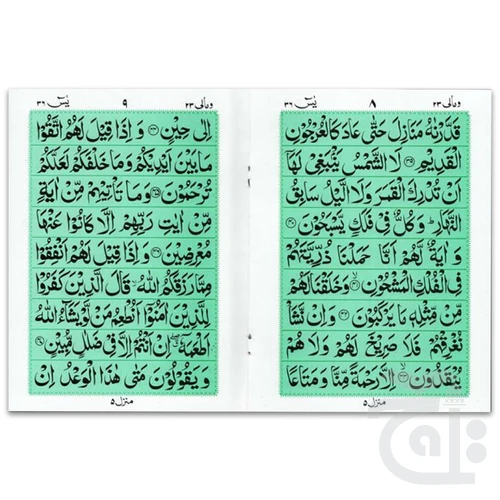 ومالی ۲۳
۸
یٰسٓ ۳۶
قَدَّرْنٰهُ مَنَازِلَ حَتّٰی عَادَ كَالْعُرْجُوْنِ
الْقَدِیْمِ ﴿۳۹﴾ لَا الشَّمْسُ یَنْۢبَغِیْ لَهَاۤ
اَنْ تُدْرِكَ الْقَمَرَ وَلَا الَّیْلُ سَابِقُ
النَّهَارِ ؕ وَكُلٌّ فِیْ فَلَكٍ یَّسْبَحُوْنَ ﴿۴۰﴾
وَ اٰیَةٌ لَّهُمْ اَنَّا حَمَلْنَا ذُرِّیَّتَهُمْ
فِی الْفُلْكِ الْمَشْحُوْنِ ﴿۴۱﴾ وَخَلَقْنَا لَهُمْ
مِّنْ مِّثْلِهٖ مَا یَرْكَبُوْنَ ﴿۴۲﴾ وَاِنْ نَّشَاْ
نُغْرِقْهُمْ فَلَا صَرِیْخَ لَهُمْ وَلَا هُمْ
یُنْقَذُوْنَ ﴿۴۳﴾ اِلَّا رَحْمَةً مِّنَّا وَمَتَاعًا
منزل ۵
ومالی ۲۳
۹
یٰسٓ ۳۶
اِلٰی حِیْنٍ ﴿۴۴﴾ وَ اِذَا قِیْلَ لَهُمُ اتَّقُوْا
مَا بَیْنَ اَیْدِیْكُمْ وَمَا خَلْفَكُمْ لَعَلَّكُمْ
تُرْحَمُوْنَ ﴿۴۵﴾ وَمَا تَاْتِیْهِمْ مِّنْ اٰیَةٍ
مِّنْ اٰیٰتِ رَبِّهِمْ اِلَّا كَانُوْا عَنْهَا
مُعْرِضِیْنَ ﴿۴۶﴾ وَاِذَا قِیْلَ لَهُمْ اَنْفِقُوْا
مِمَّا رَزَقَكُمُ اللّٰهُ ۙ قَالَ الَّذِیْنَ كَفَرُوْا
لِلَّذِیْنَ اٰمَنُوْۤا اَنُطْعِمُ مَنْ لَّوْ یَشَآءُ اللّٰهُ
اَطْعَمَهٗۤ ۖۗ اِنْ اَنْتُمْ اِلَّا فِیْ ضَلٰلٍ مُّبِیْنٍ ﴿۴۷﴾
وَ یَقُوْلُوْنَ مَتٰی هٰذَا الْوَعْدُ اِنْ
منزل ۵